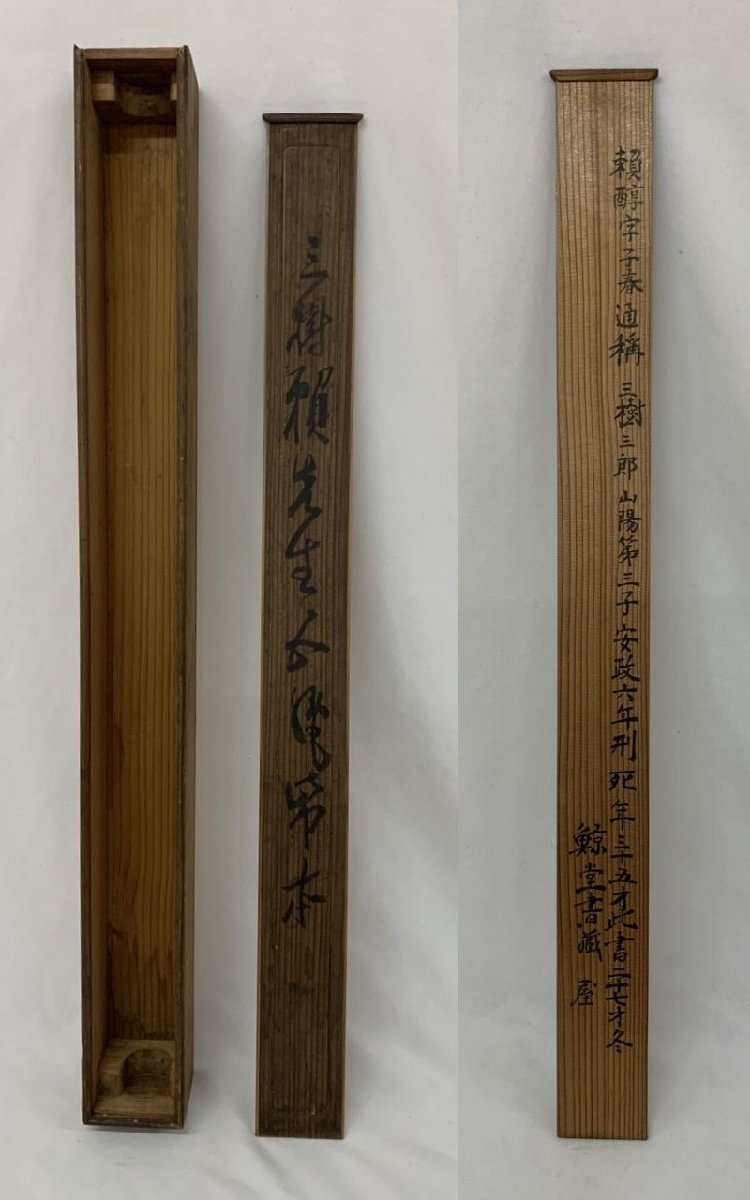 三樹頼先生五律帋本
頼醇字子春通稱三樹三郎山陽第三子安政六年刑死年三十五才此書二十七才冬
鯨堂書藏屋